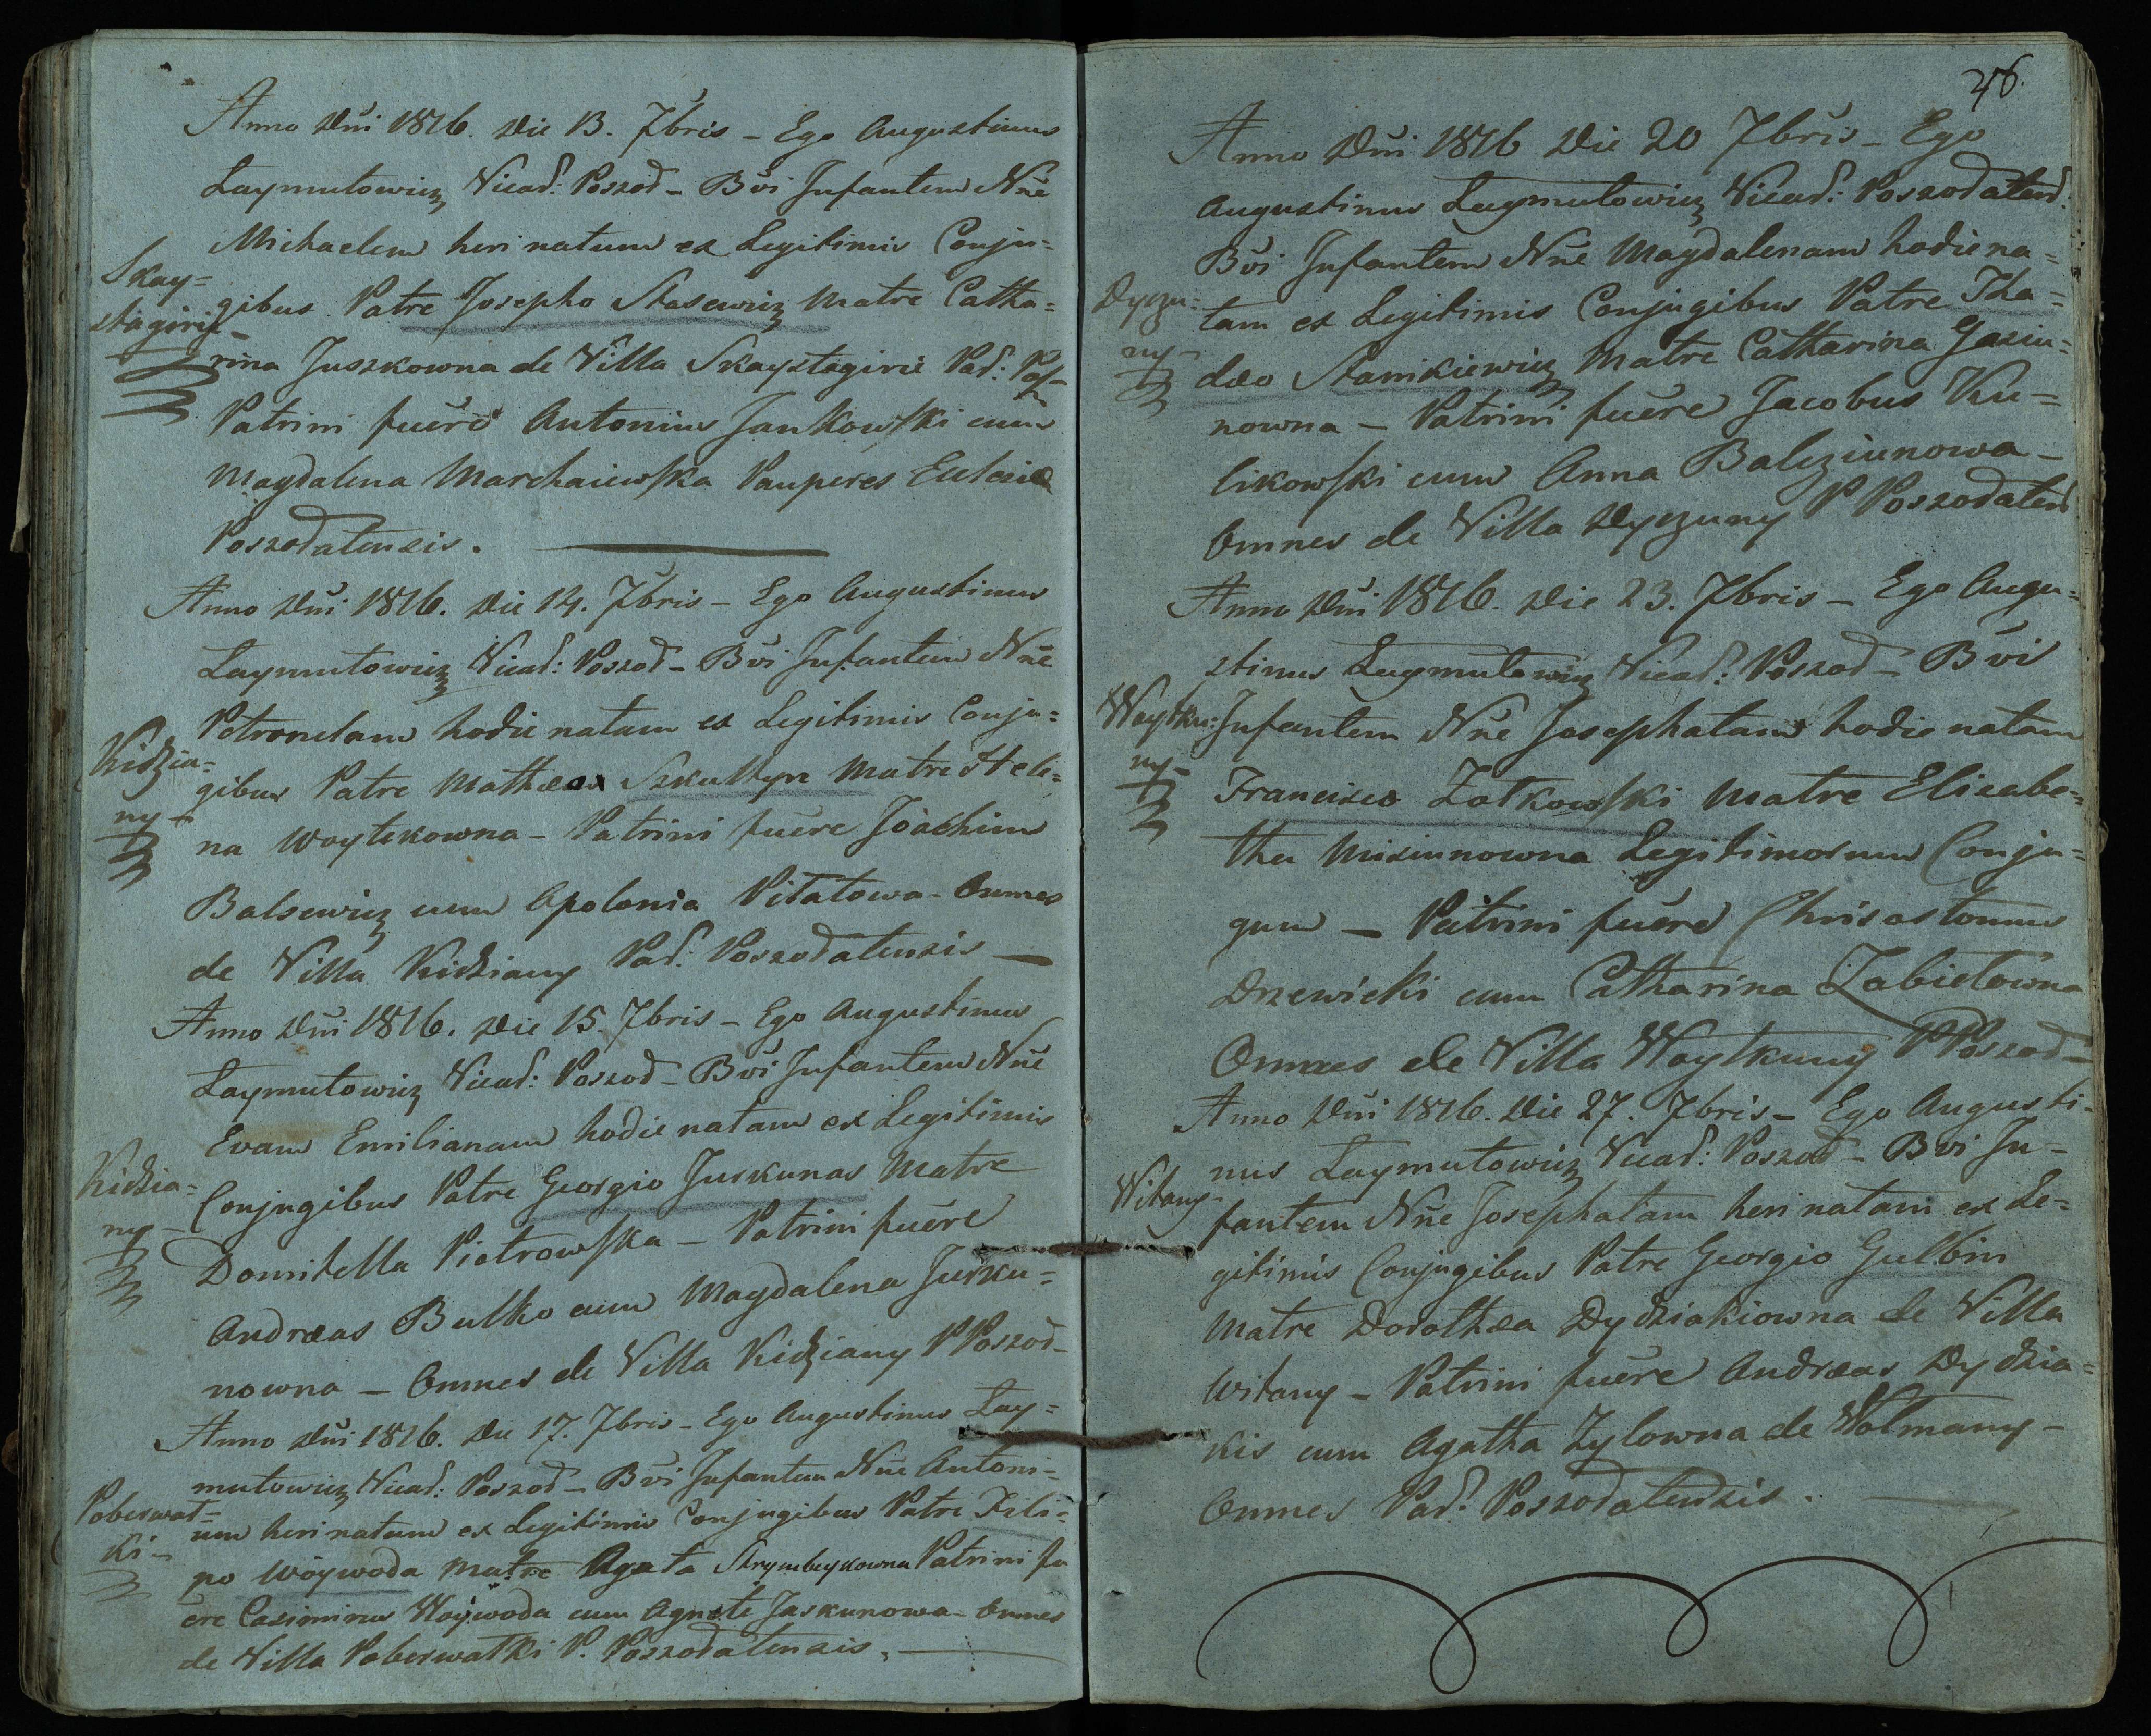 Anno Dni 1816. Die 13. 7bris - Ego Augustinus
Laymutowicz Vicad: Poszod - Bvi Infantem Nne
Michaelem heri natum ex Legitimis Conju=
Skay=
stagirie
gibus Patre Josepho Stasewicz Matre Catha=
rina Juszkowna de Villa Skaystagirie Pad:
Patrini fuere Antonius Jankowski cum
Magdalena Marchaiewska Pauperes Eclesiæ
Poszodatensis.
Anno Dni 1816. Die 14. 7bris - Ego Augustinus
Laymutowicz Vicad: Poszod - Bvi Infantem Nne
Petronelam hodie natam ex Legitimis Conju=
Kidzia=
ny
gibus Patre Mathæo Szkultyn Matre Hele=
na Woytekowna - Patrini fuere Joachim
Balsewicz cum Apolonia Pitatowa - Omnes
de Villa Kidziany Pad: Poszodatensis
Anno Dni 1816. Die 15. 7bris - Ego Augustinus
Laymutowicz Vicad: Poszod - Bvi Infantem Nne
Evam Emilianam hodie natam ex Legitimis
Kidzia=
ny
Conjugibus Patre Georgio Jurkunas Matre
Domitella Piotrowska - Patrini fuere
Andræas Butko cum Magdalena Jurku=
nowna - Omnes de Villa Kidziany P Poszod -
Anno Dni 1816. Die 17. 7bris - Ego Augustinus Lay=
mutowicz Vicad: Poszod - Bvi Infantem Nne Antoni=
Poberwat=
ki
um heri natum ex Legitimis Conjugibus Patre Fili=
po Woywoda Matre Agata Patrini fu
ere Casimirus Woywoda cum Agnete Jaskunowa - Omnes
de Villa Poberwatki P. Poszodatensis.
Anno Dni 1816 Die 20 7bris - Ego
Augustinus Laymutowicz Vicad: Poszodatens
Bvi Infantem Nne Magdalenam hodie na=
Dyczu=
ny
tam ex Legitimis Conjugibus Patre Tha=
dæo Stankiewicz Matre Catharina Gasiu=
nowna - Patrini fuere Jacobus Ku=
likowski cum Anna Balcziunowa -
Omnes de Villa Dyczuny P Poszodatens
Anno Dni 1816. Die 23. 7bris - Ego Augu=
stinus Laymutowicz Vicad: Poszod - Bvi
Woytku=
ny
Infantem Nne Josephatam hodie natam
Francisco Zotkowski Matre Elisabe=
tha Misiunowna Legitimorum Conju=
gum - Patrini fuere Chrisostomus
Drzewicki cum Catharina Zabietowna
Omnes de Villa Woytkuny P Poszod -
Anno Dni 1816. Die 27. 7bris - Ego Augusti-
nus Laymutowicz Vicad: Poszod - Bvi In-
Witany
fantem Nne Josephatam heri natam ex Le=
gitimis Conjugibus Patre Georgio Gulbin
Matre Dorothea Dydziakiowna de Villa
Witany - Patrini fuere Andræas Dydzia=
kis cum Agatha Zylowna de Wolmany -
Omnes Pad: Poszodatensis.